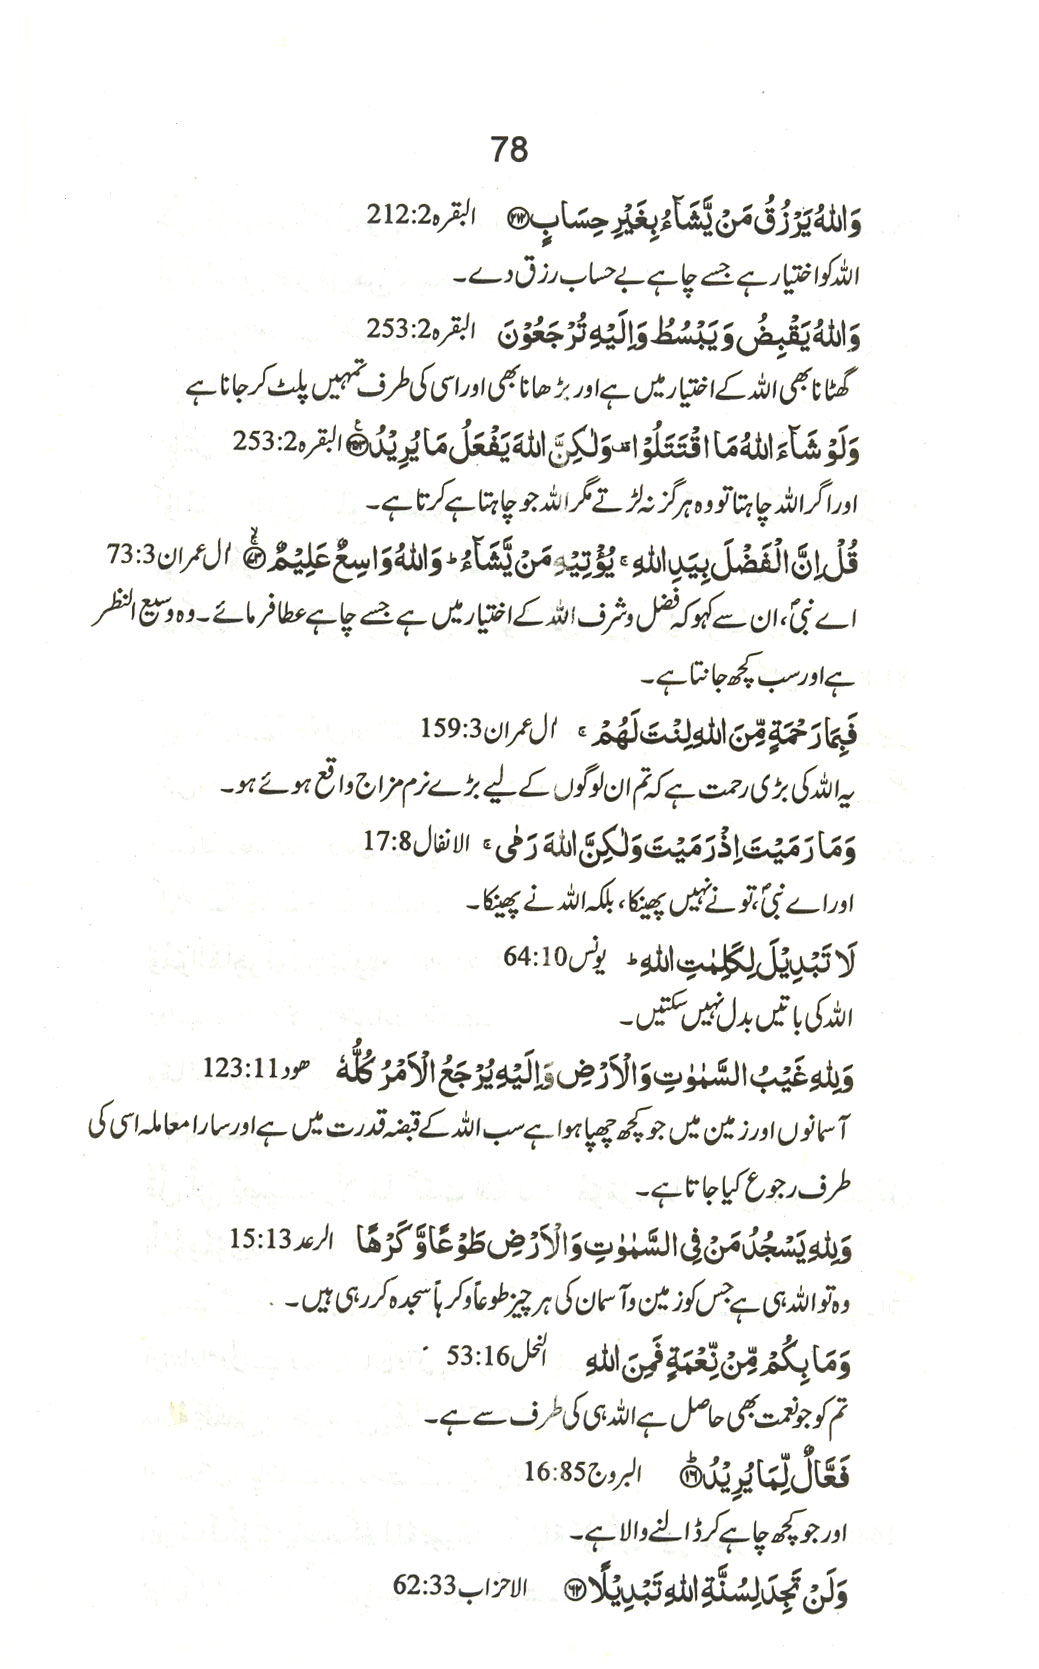 78
وَاللّٰهُ يَرْزُقُ مَنْ يَّشَآءُ بِغَيْرِ حِسَابٍ ﴿۲۱۲﴾ البقرہ 212:2
اللہ کو اختیار ہے جسے چاہے بے حساب رزق دے۔
وَاللّٰهُ يَقْبِضُ وَيَبْسُطُ وَاِلَيْهِ تُرْجَعُوْنَ البقرہ 253:2
گھٹانا بھی اللہ کے اختیار میں ہے اور بڑھانا بھی اور اسی کی طرف تمہیں پلٹ کر جانا ہے
وَلَوْ شَآءَ اللّٰهُ مَا اقْتَتَلُوْا ۫ وَلٰكِنَّ اللّٰهَ يَفْعَلُ مَا يُرِيْدُ ﴿۲۵۳﴾ البقرہ 253:2
اور اگر اللہ چاہتا تو وہ ہرگز نہ لڑتے مگر اللہ جو چاہتا ہے کرتا ہے۔
قُلْ اِنَّ الْفَضْلَ بِيَدِ اللّٰهِ ۚ يُؤْتِيْهِ مَنْ يَّشَآءُ ؕ وَاللّٰهُ وَاسِعٌ عَلِيْمٌ ﴿۷۳﴾ ال عمران 73:3
اے نبیؐ، ان سے کہو کہ فضل و شرف اللہ کے اختیار میں ہے جسے چاہے عطا فرمائے۔ وہ وسیع النظر
ہے اور سب کچھ جانتا ہے۔
فَبِمَا رَحْمَةٍ مِّنَ اللّٰهِ لِنْتَ لَهُمْ ۚ ال عمران 159:3
یہ اللہ کی بڑی رحمت ہے کہ تم ان لوگوں کے لیے بڑے نرم مزاج واقع ہوئے ہو۔
وَمَا رَمَيْتَ اِذْ رَمَيْتَ وَلٰكِنَّ اللّٰهَ رَمٰى ۚ الانفال 17:8
اور اے نبیؐ، تو نے نہیں پھینکا، بلکہ اللہ نے پھینکا۔
لَا تَبْدِيْلَ لِكَلِمٰتِ اللّٰهِ ؕ یونس 64:10
اللہ کی باتیں بدل نہیں سکتیں۔
وَلِلّٰهِ غَيْبُ السَّمٰوٰتِ وَالْاَرْضِ وَاِلَيْهِ يُرْجَعُ الْاَمْرُ كُلُّهٗ ھود 123:11
آسمانوں اور زمین میں جو کچھ چھپا ہوا ہے سب اللہ کے قبضہ قدرت میں ہے اور سارا معاملہ اسی کی
طرف رجوع کیا جاتا ہے۔
وَلِلّٰهِ يَسْجُدُ مَنْ فِى السَّمٰوٰتِ وَالْاَرْضِ طَوْعًا وَّكَرْهًا الرعد 15:13
وہ تو اللہ ہی ہے جس کو زمین و آسمان کی ہر چیز طوعاً و کرہاً سجدہ کر رہی ہیں۔
وَمَا بِكُمْ مِّنْ نِّعْمَةٍ فَمِنَ اللّٰهِ النحل 53:16
تم کو جو نعمت بھی حاصل ہے اللہ ہی کی طرف سے ہے۔
فَعَّالٌ لِّمَا يُرِيْدُ ﴿۱۶﴾ؕ البروج 16:85
اور جو کچھ چاہے کر ڈالنے والا ہے۔
وَلَنْ تَجِدَ لِسُنَّةِ اللّٰهِ تَبْدِيْلًا ﴿۶۲﴾ الاحزاب 62:33